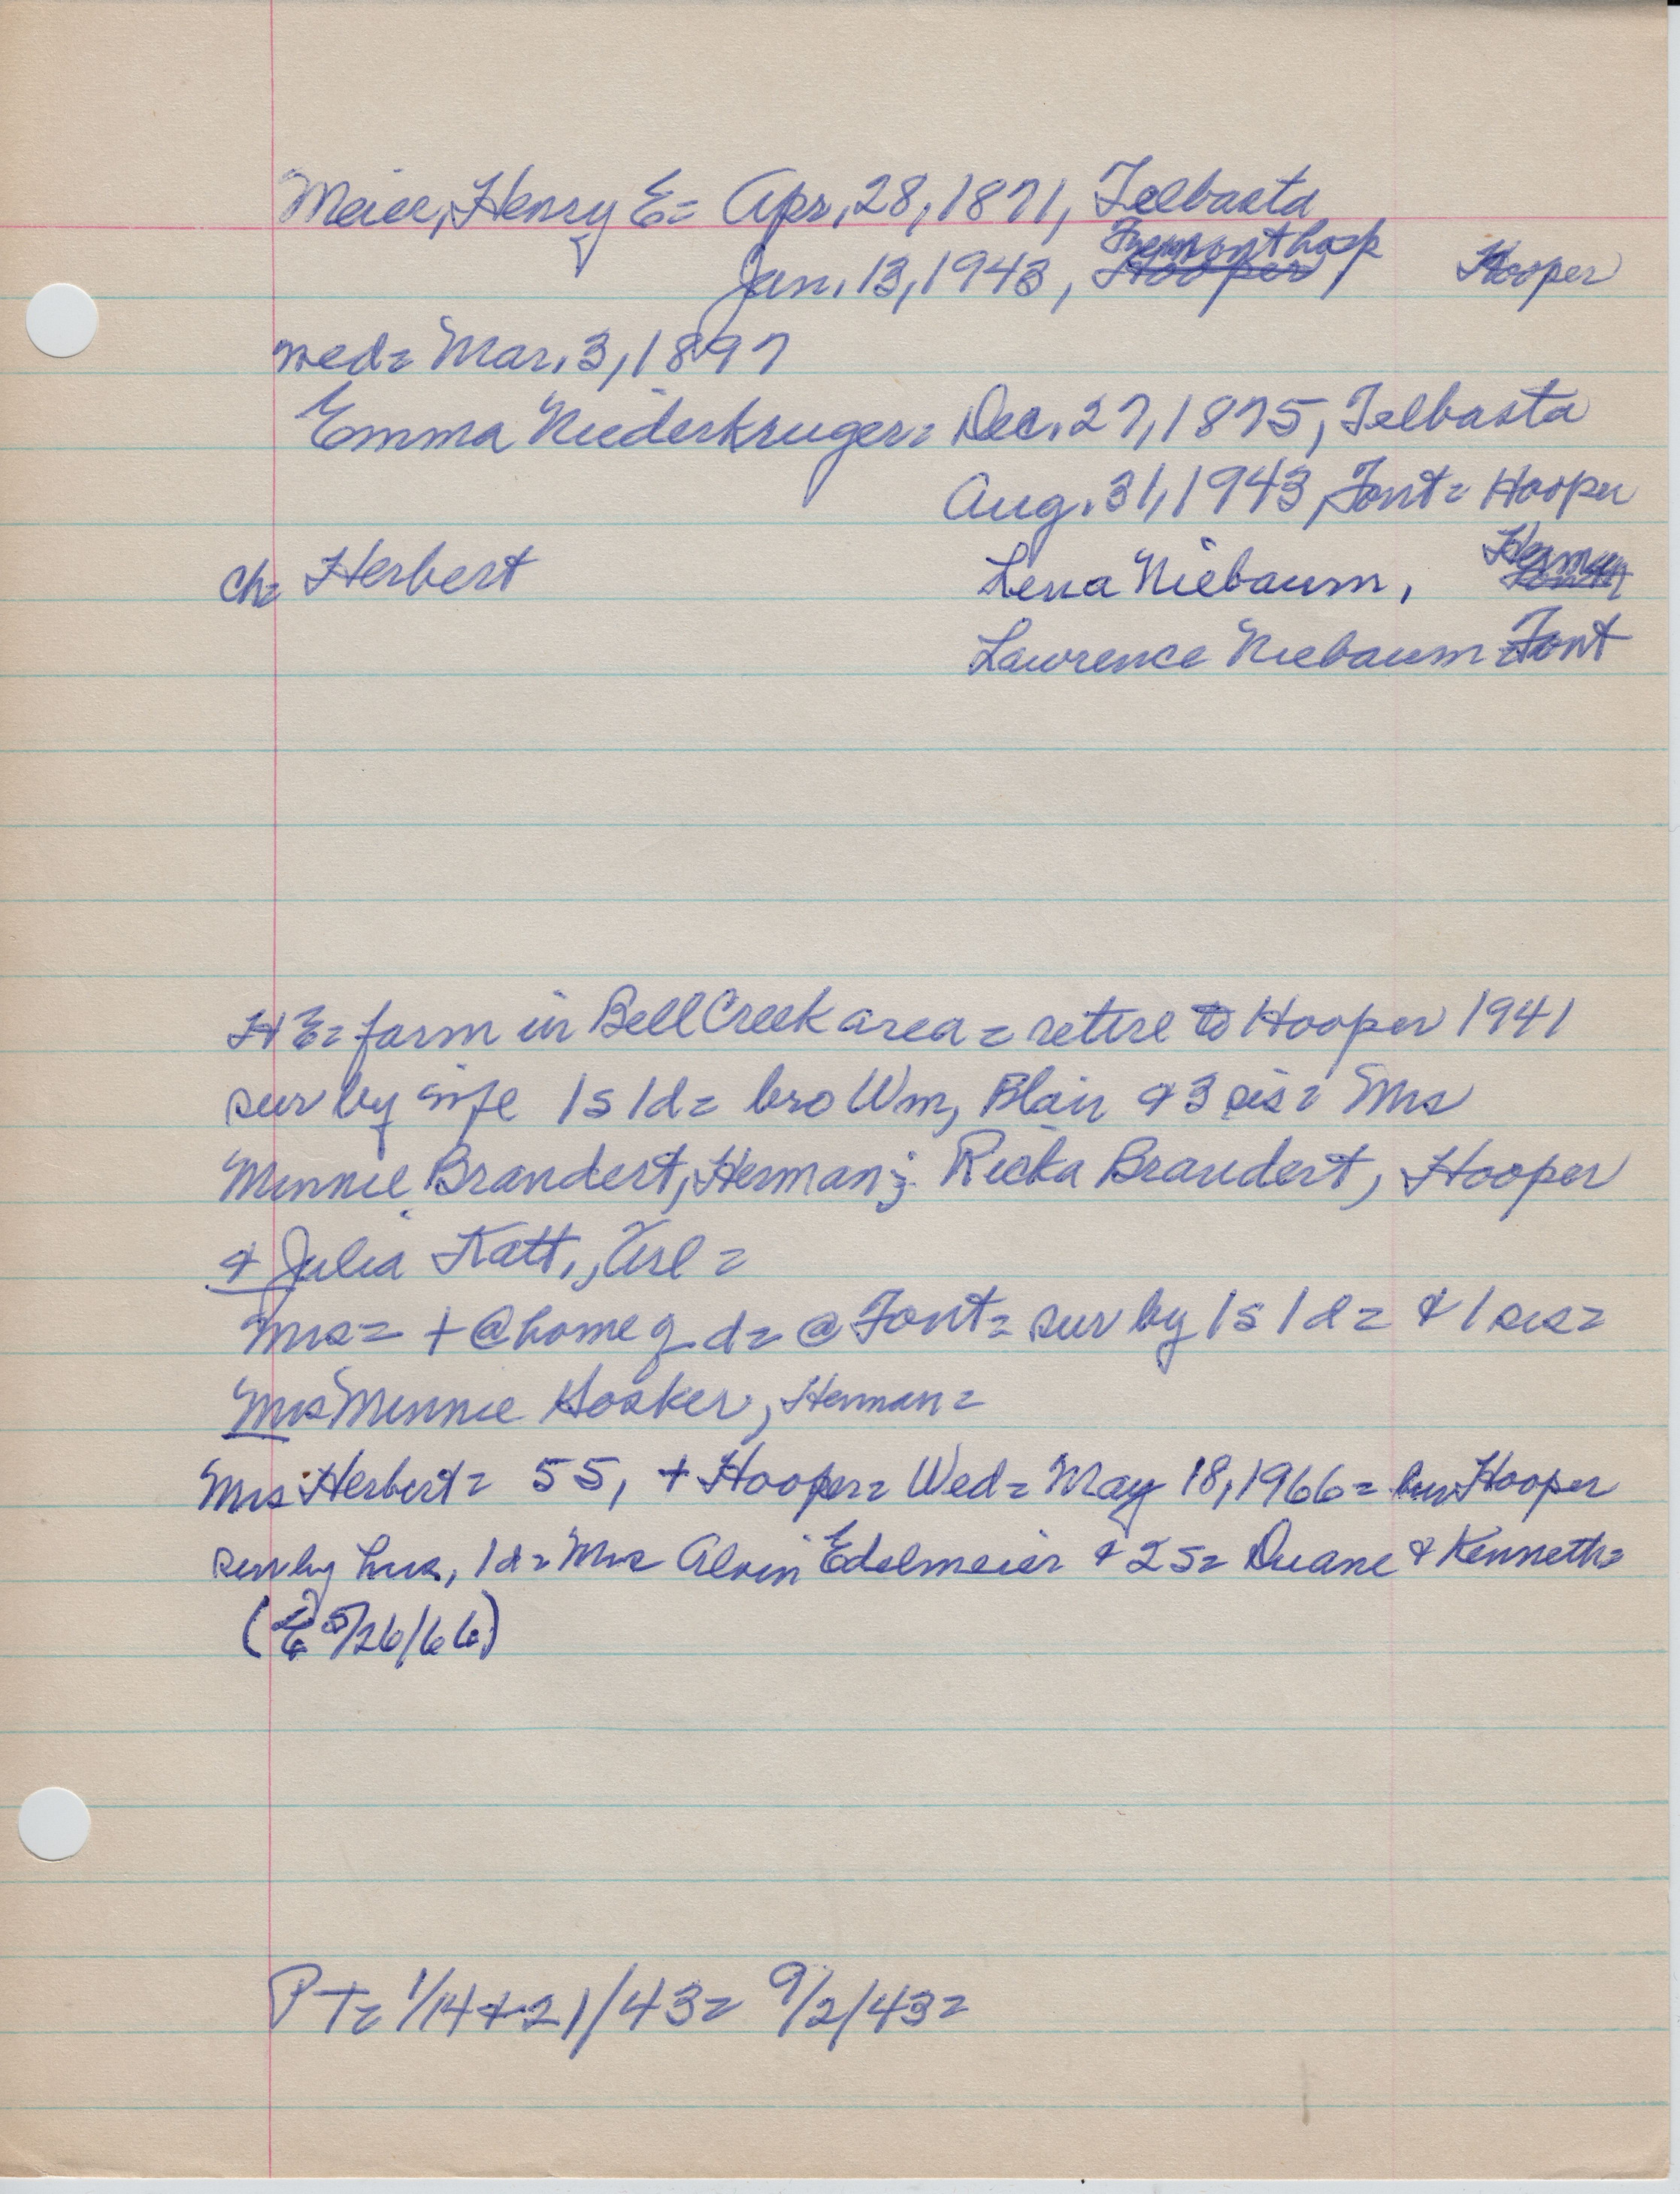 Meier, Henry E= Apr, 28, 1871, Telbasta
Fremont hosp
Jan. 13, 1943, Hooper Hooper
wed= Mar. 3, 1897
Emma Niederkruger= Dec. 27, 1875, Telbasta
Aug. 31, 1943, Font= Hooper
ch= Herbert Lena Niebaum, Herman
Lawrence Niebaum Font
H E= farm in Bell Creek area= retire to Hooper 1941
sur by wife 1s 1d= bro Wm, Blair & 3 sis= Mrs
Minnie Brandert, Herman; Ricka Brandert, Hooper
& Julia Katt., Arl=
Mrs= + @ home of d= @ Font= sur by 1s 1d= & 1 sis=
Mrs Minnie Hosker, Herman=
Mrs Herbert= 55, + Hooper= Wed= May 18, 1966= bur Hooper
sur by hus, 1d= Mrs Alvin Edelmeier & 2s= Duane & Kenneth=
(E 5/26/66)
PT= 1/14+21/43= 9/2/43=